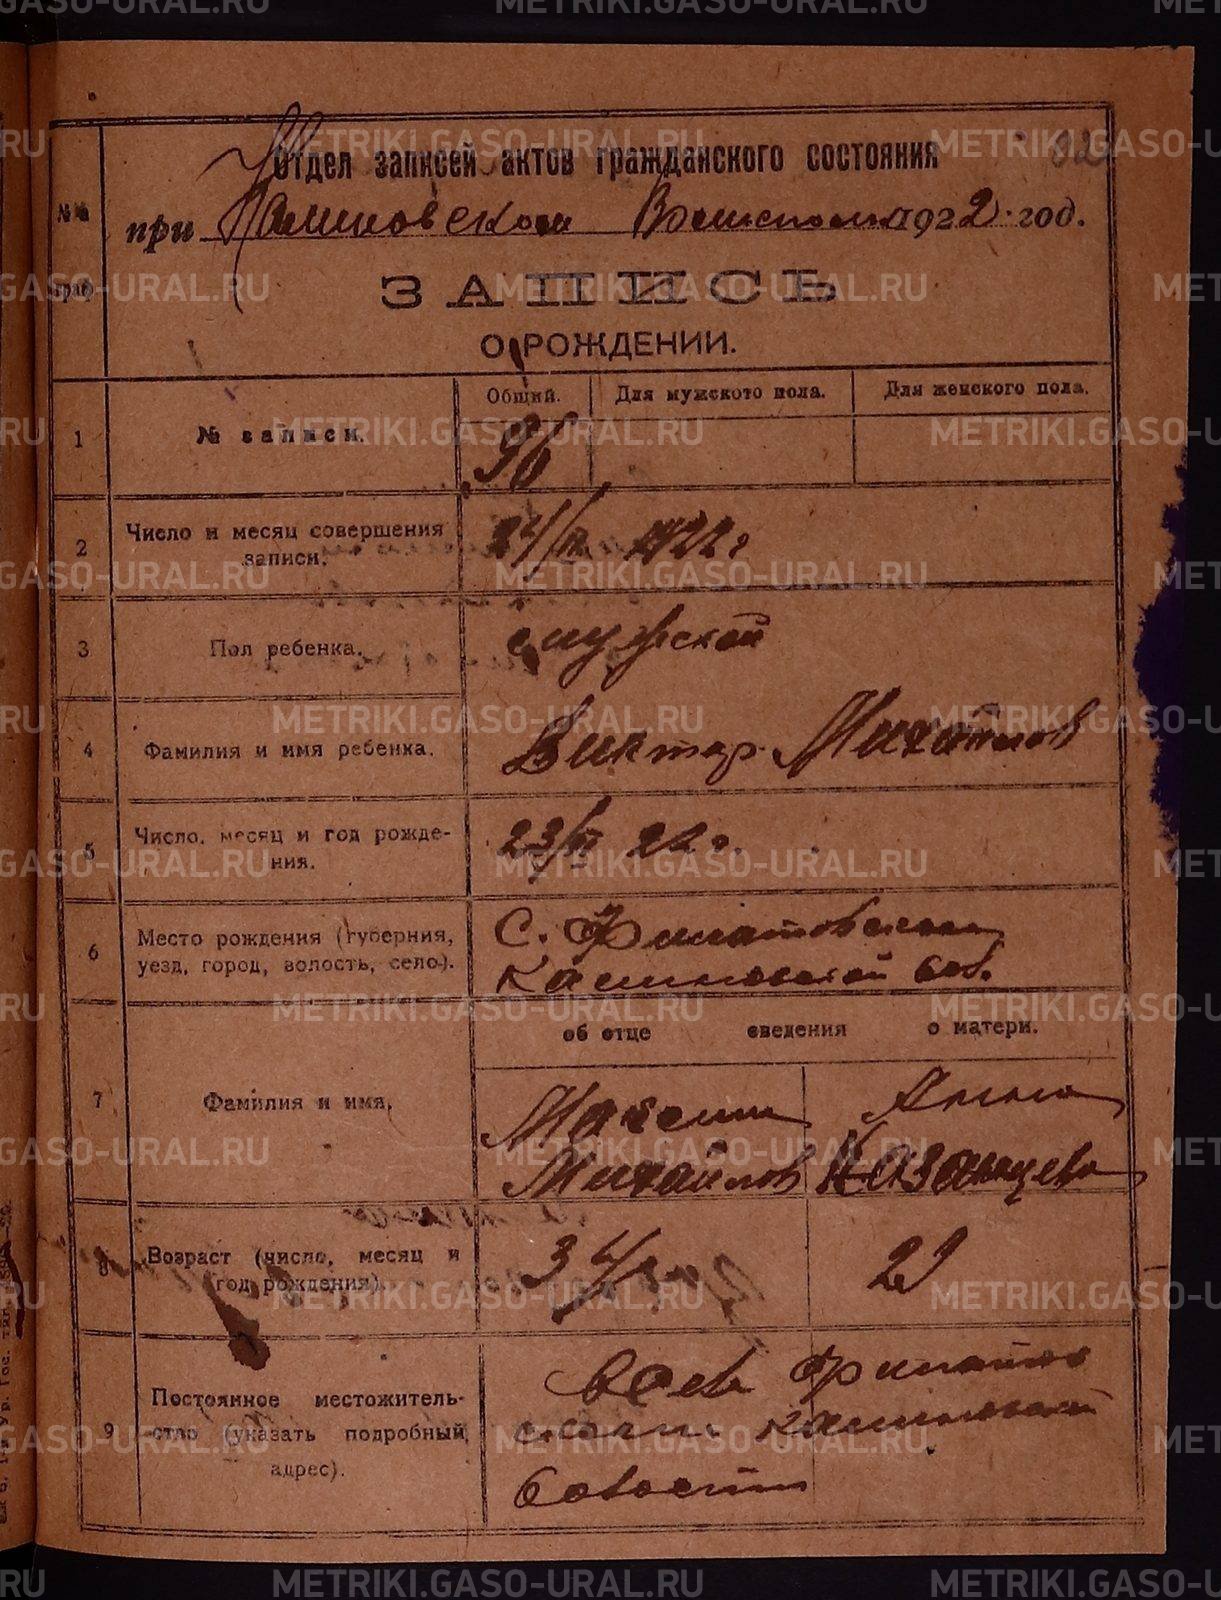 82
Отдел записей актов гражданского состояния
№№ граф
при Калиновском Волисполк. 1922 год.
ЗАПИСЬ
О РОЖДЕНИИ.
Общий. Для мужского пола. Для женского пола.
1 № записи. 96
2 Число и месяц совершения записи. 24/ 1922 г
3 Пол ребенка. мужской
4 Фамилия и имя ребенка. Виктор Михайлов
5 Число, месяц и год рождения. 23/ 22 г.
6 Место рождения (губерния, С. Филатовском
уезд, город, волость, село). Калиновской вол.
об отце сведения о матери.
7 Фамилия и имя. Максим Анна
Михайлов Казанцева
8 Возраст (число, месяц и год рождения). 34 29
9 Постоянное местожитель- В селе Филатов
ство (указать подробный ском Калиновской
адрес). волости
METRIKI.GASO-URAL.RU